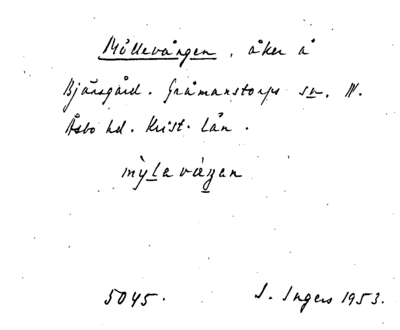 Möllevången, åker å
Bjärsgård. Gråmanstorps sn. N.
Åsbo hd. Krist. län.
mỳlavàŋan
5045. I. Ingers 1953.